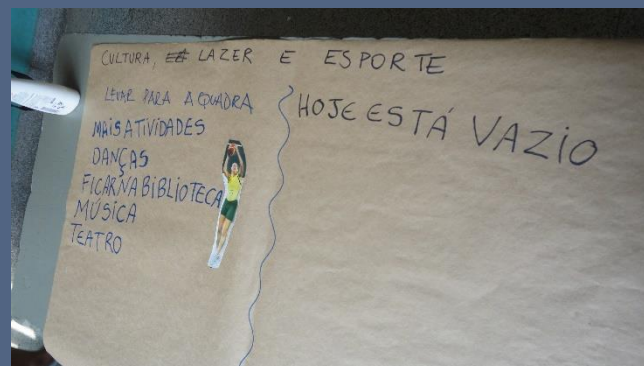 CULTURA, LAZER E ESPORTE
LEVAR PARA A QUADRA
MAIS ATIVIDADES
DANÇAS
FICAR NA BIBLIOTECA
MÚSICA
TEATRO
HOJE ESTÁ VAZIO